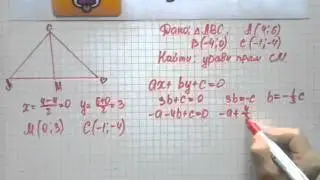 C
M
Дано: △ABC, A(4;6)
B(-4;0) C(-1;-4)
Найти: уравн прям CM.
ax + by + c = 0
x = 4-4/2 = 0 y = 6+0/2 = 3
3b + c = 0 3b = -c b = -1/3 c
M(0;3) C(-1;-4)
-a - 4b + c = 0 -a + 4/